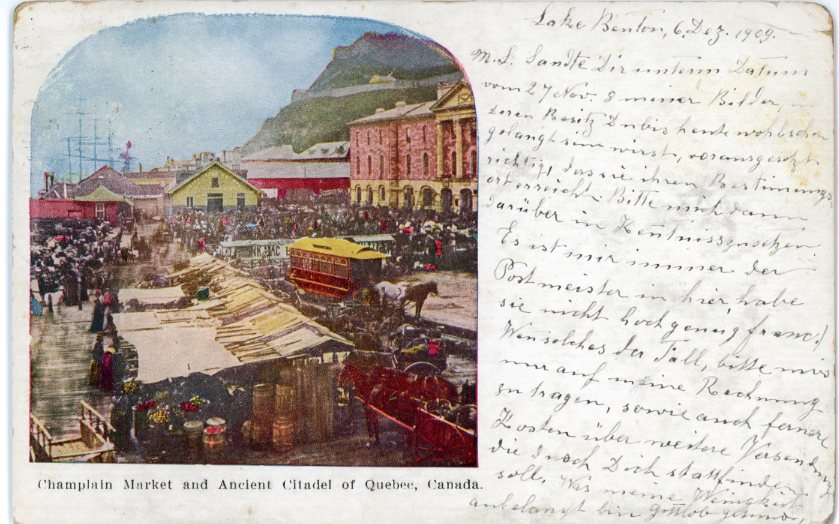 Lake Benton, 6. Dez. 1909.
M. L. Sandte Dir unterm Datum
vom 27 Nov. 8 meiner Bilder, in
deren Besitz Du bis heute wohl schon
gelangt sein wirst, vorausgesetzt
richtig, das sie ihren Bestimmungs-
ort erreicht. Bitte mich dann
darüber in Kentniss zu sehen.
Es ist mir immer der
Postmeister in hier habe
sie nicht hoch genug franc.
Wen solches der Fall, bitte mir
nur auf meine Rechnung
zu tragen, sowie auch fernere
Kosten über weitere Versendung
die durch Dich stattfinden
soll. Was meine Wenigkeit
anbelangt bin Gottlob gesund,
Champlain Market and Ancient Citadel of Quebec, Canada.